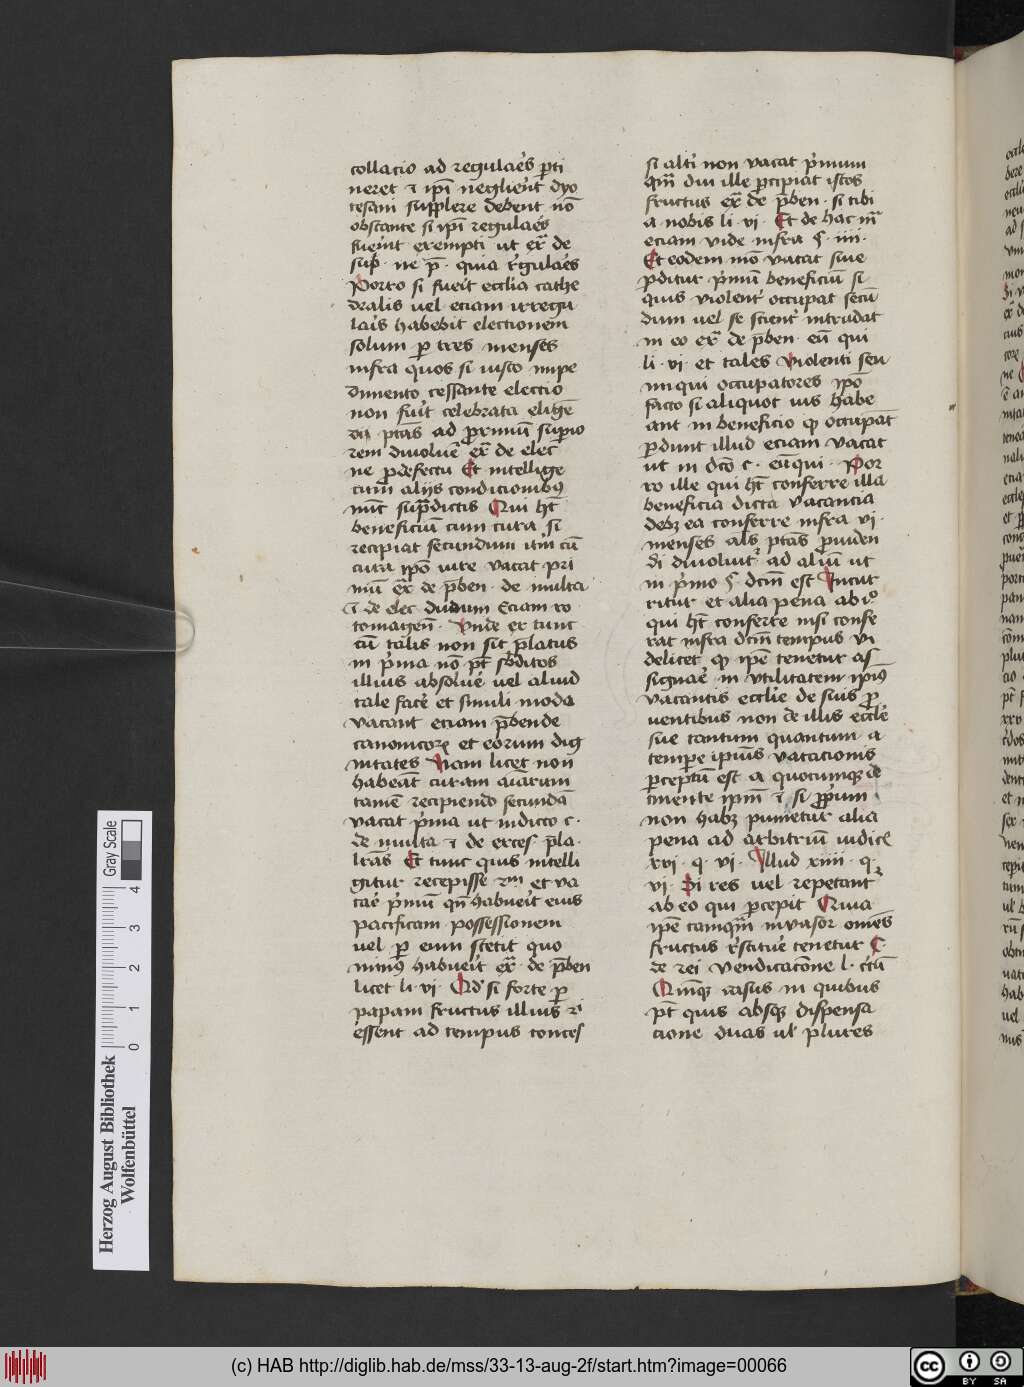 collacio ad regulaēs ꝑti
neret ⁊ ip̄i neglieūt dyo
cesani supplere debent nō
obstante si ip̄i regulaēs
fueīnt exempti ut ex̄ de
sup̄ · ne p̄ · quia r̄gulaēs
Porro si fueit eccl̄ia cathe
dralis uel eciam irregu
laīs habebit electionem
solum ꝑ tres menses
infra quos si iusto impe
dimento cessante electio
non fuīt celebrata eligē
di ptās ad ꝓximū supio
rem diuoluēt ex̄ de elec
ne ꝓ defectu Et intellige
cum alijs condicionibꝯ
nūc sup̄dictis Qui ht̄
beneficiū cum cura si
recipiat secundum itm̄ cū
cura ip̄o iure vacat pri
mū ex̄ de p̄ben · de multa
⁊ de elec dudum Eciam ro
tomagen̄ · Vnde ex tunc
cū talis non sit p̄latus
in p̄ma nō pt̄ sb̄ditos
illius absoluē uel aliud
tale facē et simili modo
vacant eciam p̄bende
canonicoꝝ et eorum dig
nitates Nam licet non
habeāt curam aīarum
tamē recipiendo secundā
vacat p̄ma ut in dicto c ·
de multa ⁊ de exces · p̄la ·
Et tunc quis intelli
gitur recepisse et va
caē p̄mū qn̄ habueīt eius
pacificam possessionem
uel ꝑ eum stetit quo
minꝯ habueīt ex̄ · de p̄ben
licet li · vi · Qd' si forte ꝑ
papam fructus illius
essent ad tempus conces
si alti non vacat p̄mum
qm̄ diu ille ꝑcipiat istos
fructus ex̄ de p̄ben · si tibi
a nobis li · vi · Et de hac
eciam vide infra § · iiii ·
Et eodem mō vacat siue
ꝑditur p̄mū beneficiū si
quis violent' occupat secū
dum uel se scient' intrudat
in eo ex̄ de p̄ben · eū qui
li · vi · et tales violenti seu
iniqui occupatores ip̄o
facto si aliquot ius habe
ant in beneficio qd occupāt
ꝑdunt illud eciam vacat
ut in dc̄o c · eū qui · Por
ro ille qui ht̄ conferre illa
beneficia dicta vacantia
debꝫ ea conferre infra vi ·
menses als ptās ꝓuiden
di diuoluit' ad aliū ut
in p̄mo § dcm̄ est Incur
ritur et alia pena ab
qui ht̄ conferre nisi confe
rat infra dcm̄ tempus vi
delicet qd ip̄e tenetur as
signaē in vtilitatem ipiꝯ
vacantis eccl̄ie de suis ꝓ
uentibus non de illis eccl̄e
sue tantum quantum a
tempe ipius vacacionis
ꝑceptū est a quocumqꝫ de
tinente ipm̄ ⁊ si ꝓpium
non habꝫ punietur alia
pena ad arbitriū iudicē
xvi · q · vi · Illud xiiii · q ·
vi · Si res uel repetant'
ab eo qui ꝑcepit Quia
ip̄e tamqm̄ inuasor omēs
fructus r̄stituē tenetur C ·
de rei vendicacōne l · c̄tū
Quinqꝫ casus in quibus
pt̄ quis absqꝫ dispensa
cione duas ul̄ plures
Herzog August Bibliothek
Wolfenbüttel
Gray Scale
0 1 2 3 4
(c) HAB http://diglib.hab.de/mss/33-13-aug-2f/start.htm?image=00066
cc BY SA